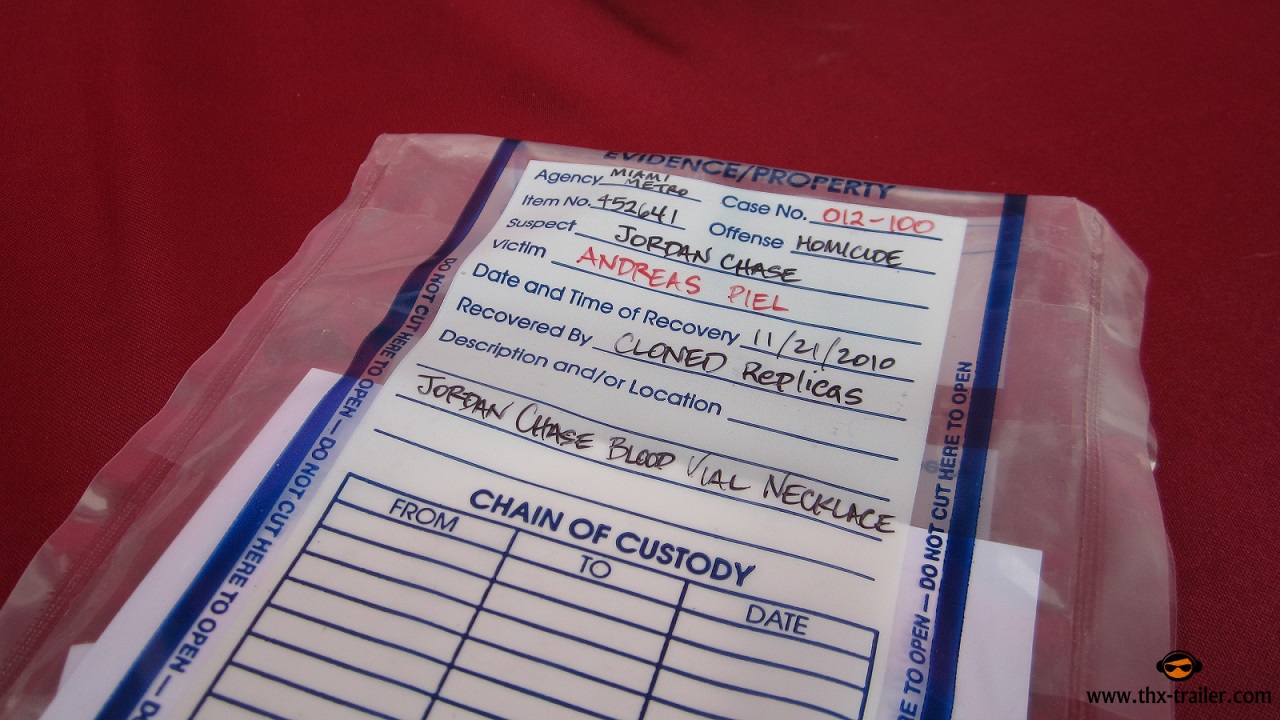 EVIDENCE/PROPERTY
Agency MIAMI METRO Case No. 012-100
Item No. 452641 Offense HOMICIDE
Suspect JORDAN CHASE
Victim ANDREAS PIEL
Date and Time of Recovery 11/21/2010
Recovered By CLONED Replicas
Description and/or Location
JORDAN CHASE BLOOD VIAL NECKLACE
CHAIN OF CUSTODY
FROM TO DATE
DO NOT CUT HERE TO OPEN — DO NOT CUT HERE TO OPEN — DO
RE TO OPEN — DO NOT CUT HERE TO OPEN
www.thx-trailer.com